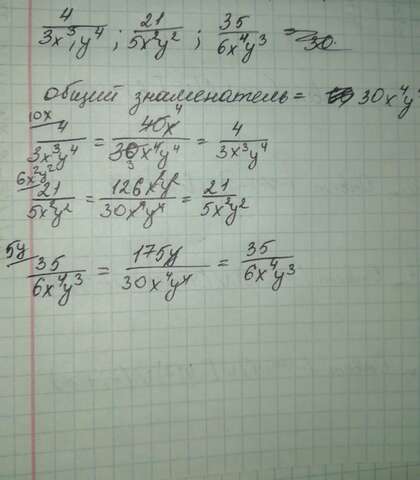 4/(3x³y⁴) ; 21/(5x²y²) ; 35/(6x⁴y³) = 30
общий знаменатель = 30x⁴y
10x
4/(3x³y⁴) = 40x/(30x⁴y⁴) = 4/(3x³y⁴)
6x²y²
21/(5x²y²) = 126x²y²/(30x⁴y⁴) = 21/(5x²y²)
5y
35/(6x⁴y³) = 175y/(30x⁴y⁴) = 35/(6x⁴y³)